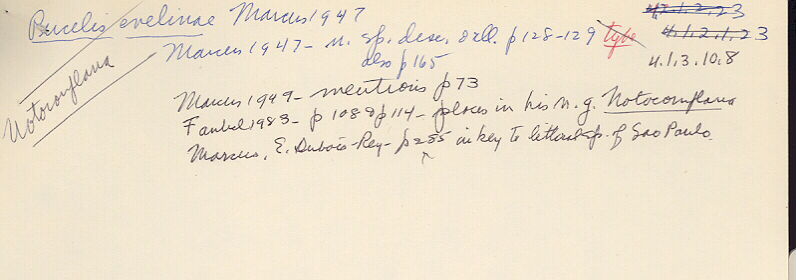 Pucelis evelinae Marcus 1947
4.1.2.23
Marcus 1947 - n. sp. desc. & ill. p 128-129 type
4.1.2.1.23
also p 165
4.1.3.10.8
Notocomplana
Marcus 1949 - mentions p 73
Faubel 1983 - p 108 & p 114 - places in his n. g. Notocomplana
Marcus, E. Dubois-Rey - p 285 in key to littoral sp. of Sao Paulo.